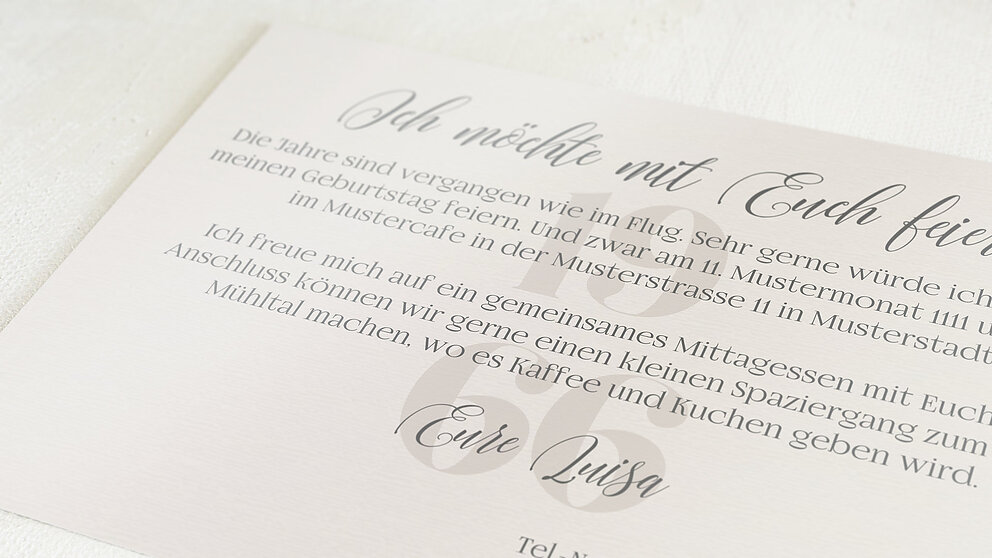 Ich möchte mit Euch feier
Die Jahre sind vergangen wie im Flug. Sehr gerne würde ich
meinen Geburtstag feiern. Und zwar am 11. Mustermonat 1111 u
im Mustercafe in der Musterstrasse 11 in Musterstadt
19
Ich freue mich auf ein gemeinsames Mittagessen mit Euch
Anschluss können wir gerne einen kleinen Spaziergang zum
Mühltal machen, wo es Kaffee und Kuchen geben wird.
66
Eure Luisa
Tel.-N